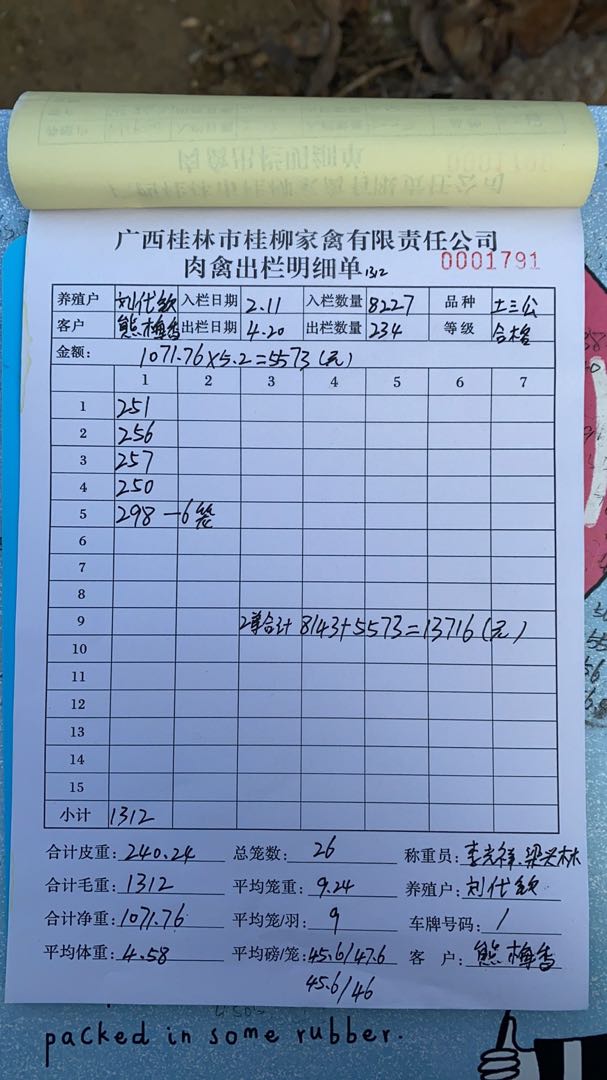 广西桂林市桂柳家禽有限责任公司
肉禽出栏明细单 1312 0001791
养殖户 刘代钦 入栏日期 2.11 入栏数量 8227 品种 土三公
客户 熊梅香 出栏日期 4.20 出栏数量 234 等级 合格
金额: 1071.76×5.2=5573(元)
1 2 3 4 5 6 7
1 251
2 256
3 257
4 250
5 298 -6袋
6
7
8
9 2单合计 8143+5573=13716(元)
10
11
12
13
14
15
小计 1312
合计皮重: 240.24 总笼数: 26 称重员: 李光祥.梁兴林
合计毛重: 1312 平均笼重: 9.24 养殖户: 刘代钦
合计净重: 1071.76 平均笼/羽: 9 车牌号码: /
平均体重: 4.58 平均磅/笼: 45.6/47.6 客户: 熊梅香
45.6/46
packed in some rubber.